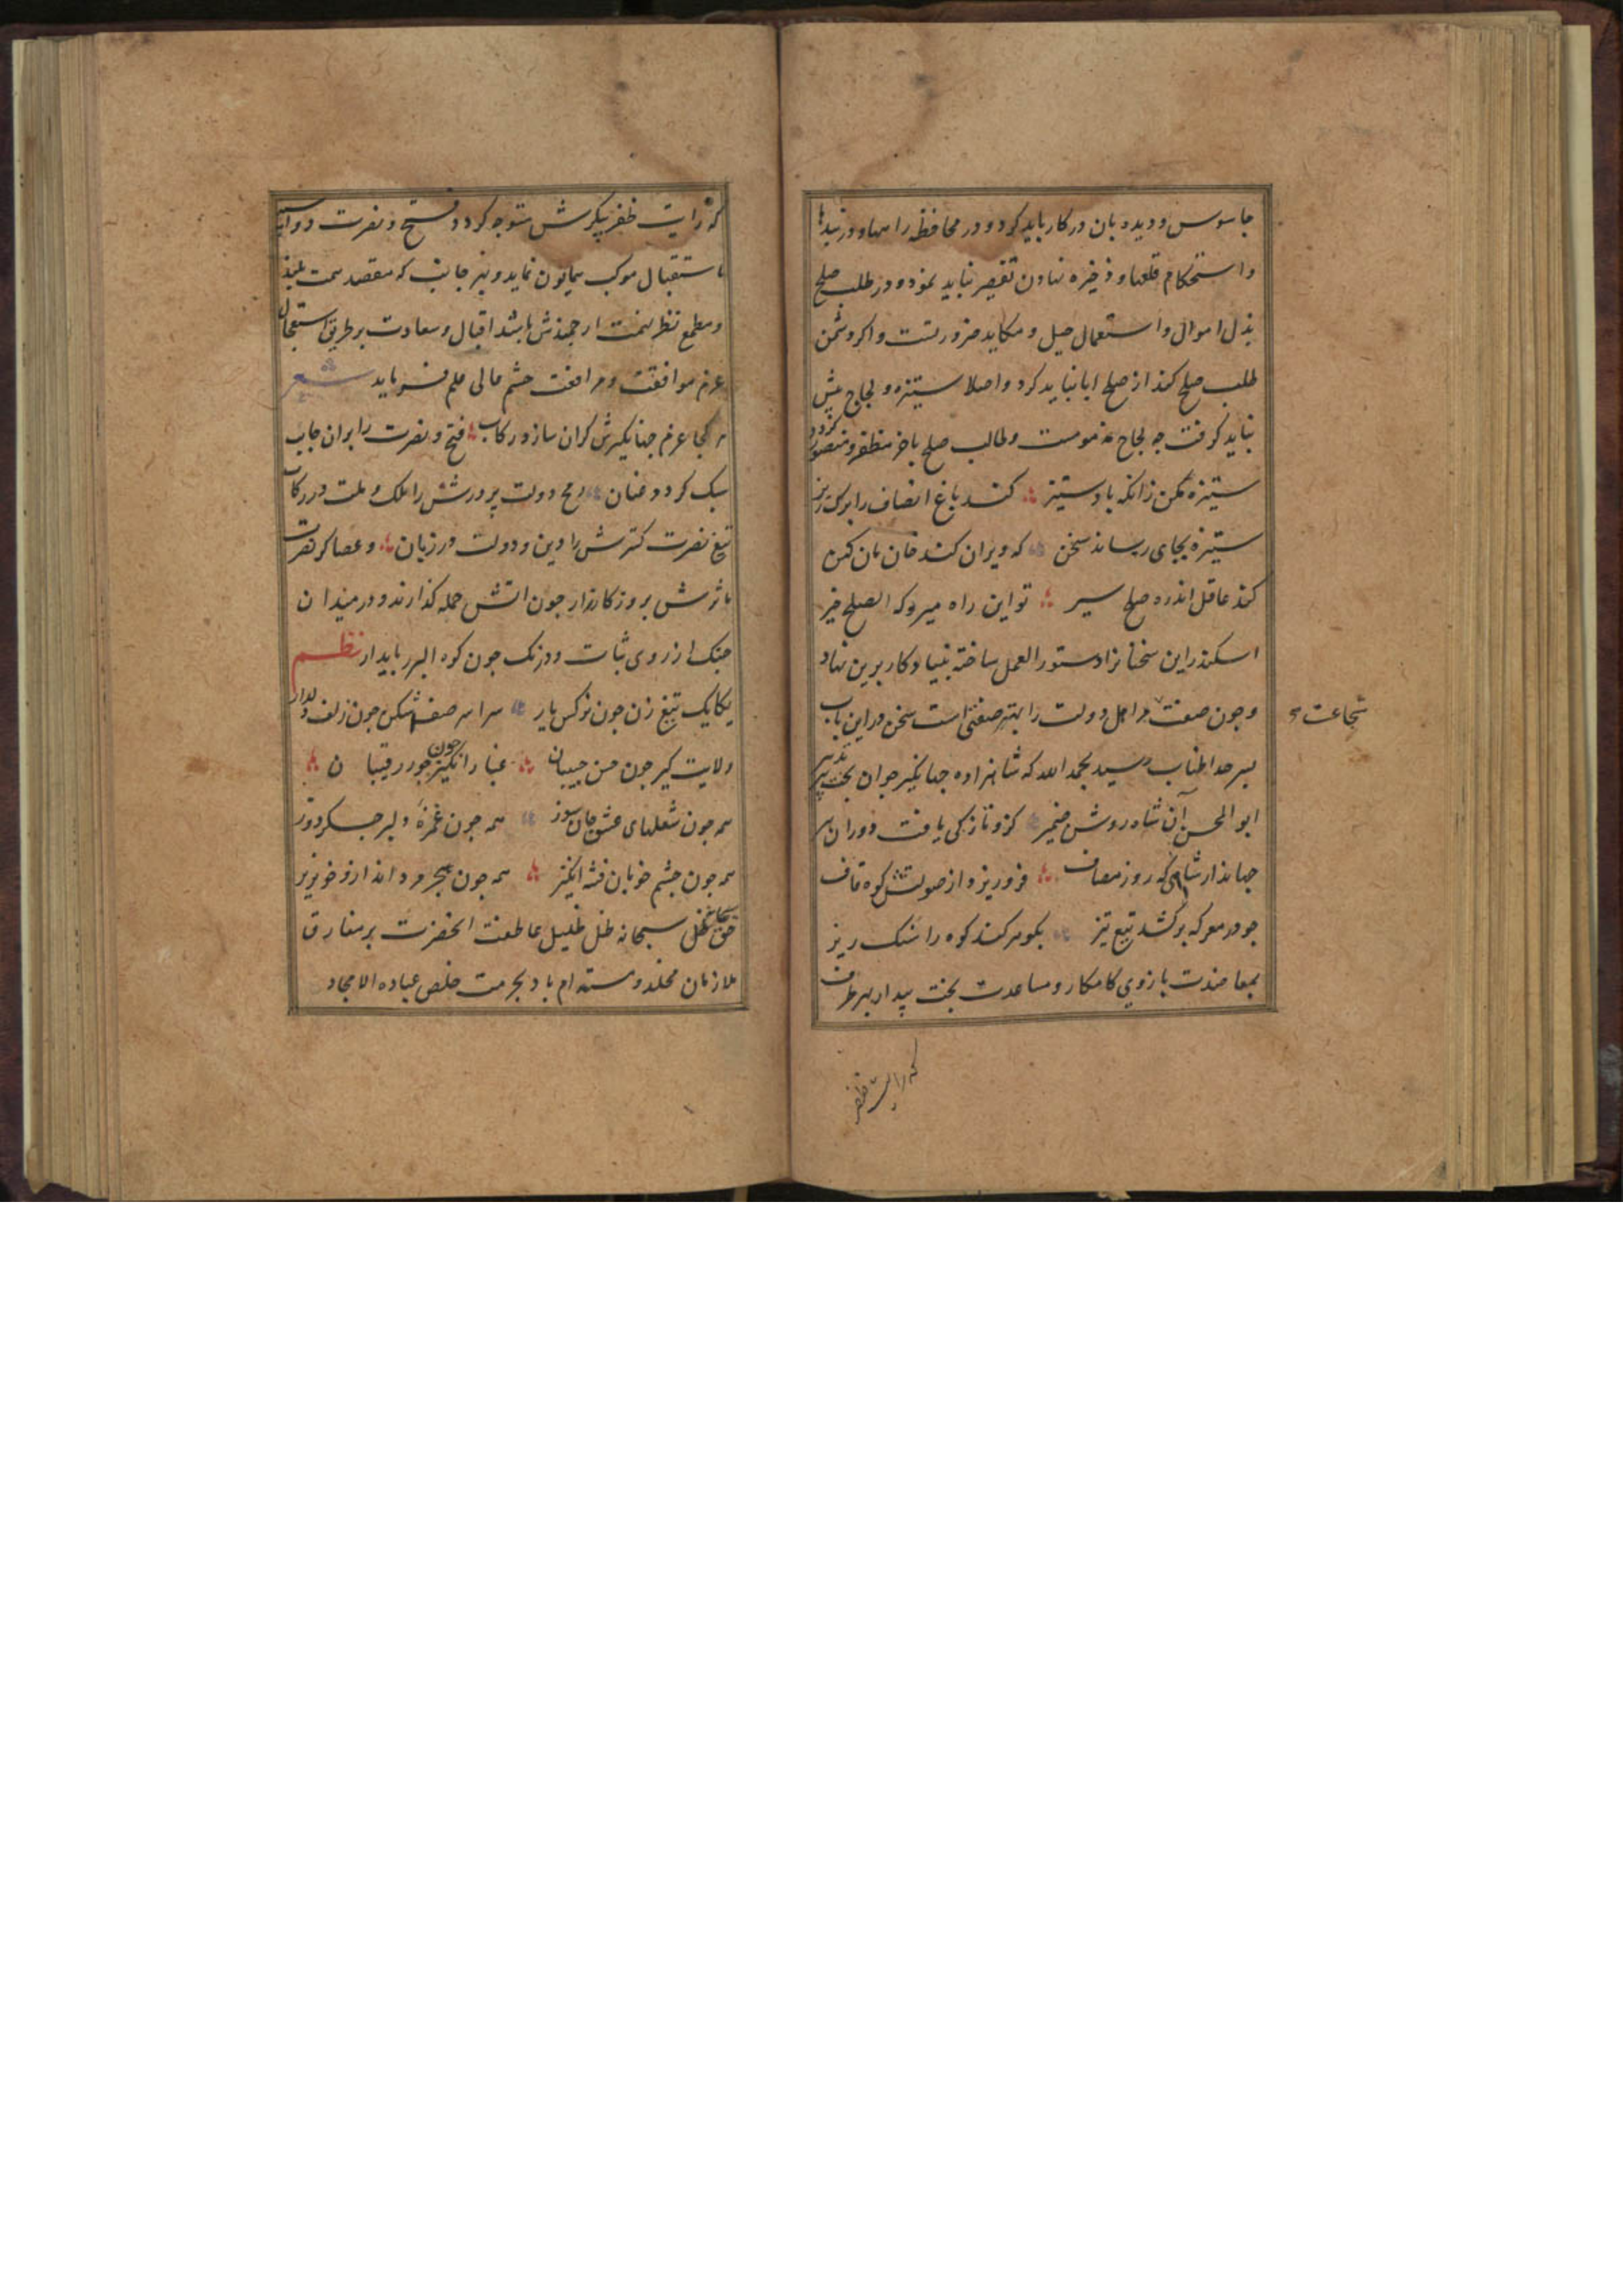 جاسوس و دیده بان در کار باید کرد و در محافظه راهها و در بندها
و استحکام قلعها و ذخیره نهادن تقصیر نباید نمود و در طلب صلح
بذل اموال و استعمال حیل و مکاید ضروریست و اکر دشمن
طلب صلح کند از صلح ابا نباید کرد و اصلا ستیزه و لجاج پیش
نباید کرفت جه لجاج مذمومست و طالب صلح باخر مظفر و منصور کردد
ستیزه مکن زانکه باد ستیز کند باغ انصاف را برک ریز
ستیزه بجای رساند سخن که ویران کند خان مان کهن
کند عاقل اندر ره صلح سیر تو این راه میرو که الصلح خیر
اسکندر این سخنانرا دستور العمل ساخته بنیاد کار برین نهاد
و جون صفت مر اهل دولت را بهتر صفتی است سخن در این باب
شجاعت
بسر حد اطناب رسید بحمد الله که شاهزاده جهانکیر جوان بخت تدبیر پیر
ابو المحسن آن شاه روشن ضمیر کزو تازکی یافت دوران پیر
جهاندار شاهی که روز مصاف فرو ریزد از صولتش کوه قاف
جو در معرکه برکشد تیغ تیز بکوهر کند کوه را سنک ریز
بمعاضدت بازوی کامکار و مساعدت بخت بیدار بهر طرف
که رایت ظفر
که رایت ظفر پیکرش متوجه کردد فتح و نصرت دو اسبه
باستقبال موکب همایون نماید و بهر جانب که مقصد همت بلند
و مطمح نظر نهمت ارجمندش باشد اقبال و سعادت بر طریق استعجال
عزم موافقت و مرافقت حشم عالی علم فرماید شعر
هر کجا عزم جهانکیرش کران سازد رکاب فتح و نصرت را بران جانب
سبک کردد عنان رمح دولت پرورشش را ملک و ملت در رکاب
تیغ نصرت کسترش را دین و دولت در زبان و عساکر نصرت
ماثرش بروز کارزار جون اتش حمله کذارند و در میدان
جنک از روی ثبات و درنک جون کوه البرز پایدار نظم
یکایک تیغ زن جون نرکس یار سراسر صف شکن جون زلف دلدار
ولایت کیر جون حسن حبیبان غبار انکیز جون جور رقیبان
همه جون شعلهای عشق جان سوز همه جون غمزه دلبر جکر دوز
همه جون جشم خوبان فتنه انکیز همه جون هجر مرد انداز و خونریز
حق سبحانه ظل ظلیل عاطفت انحضرت بر مفارق
ملازمان مخلد و مستدام باد بحرمت خلص عباده الامجاد